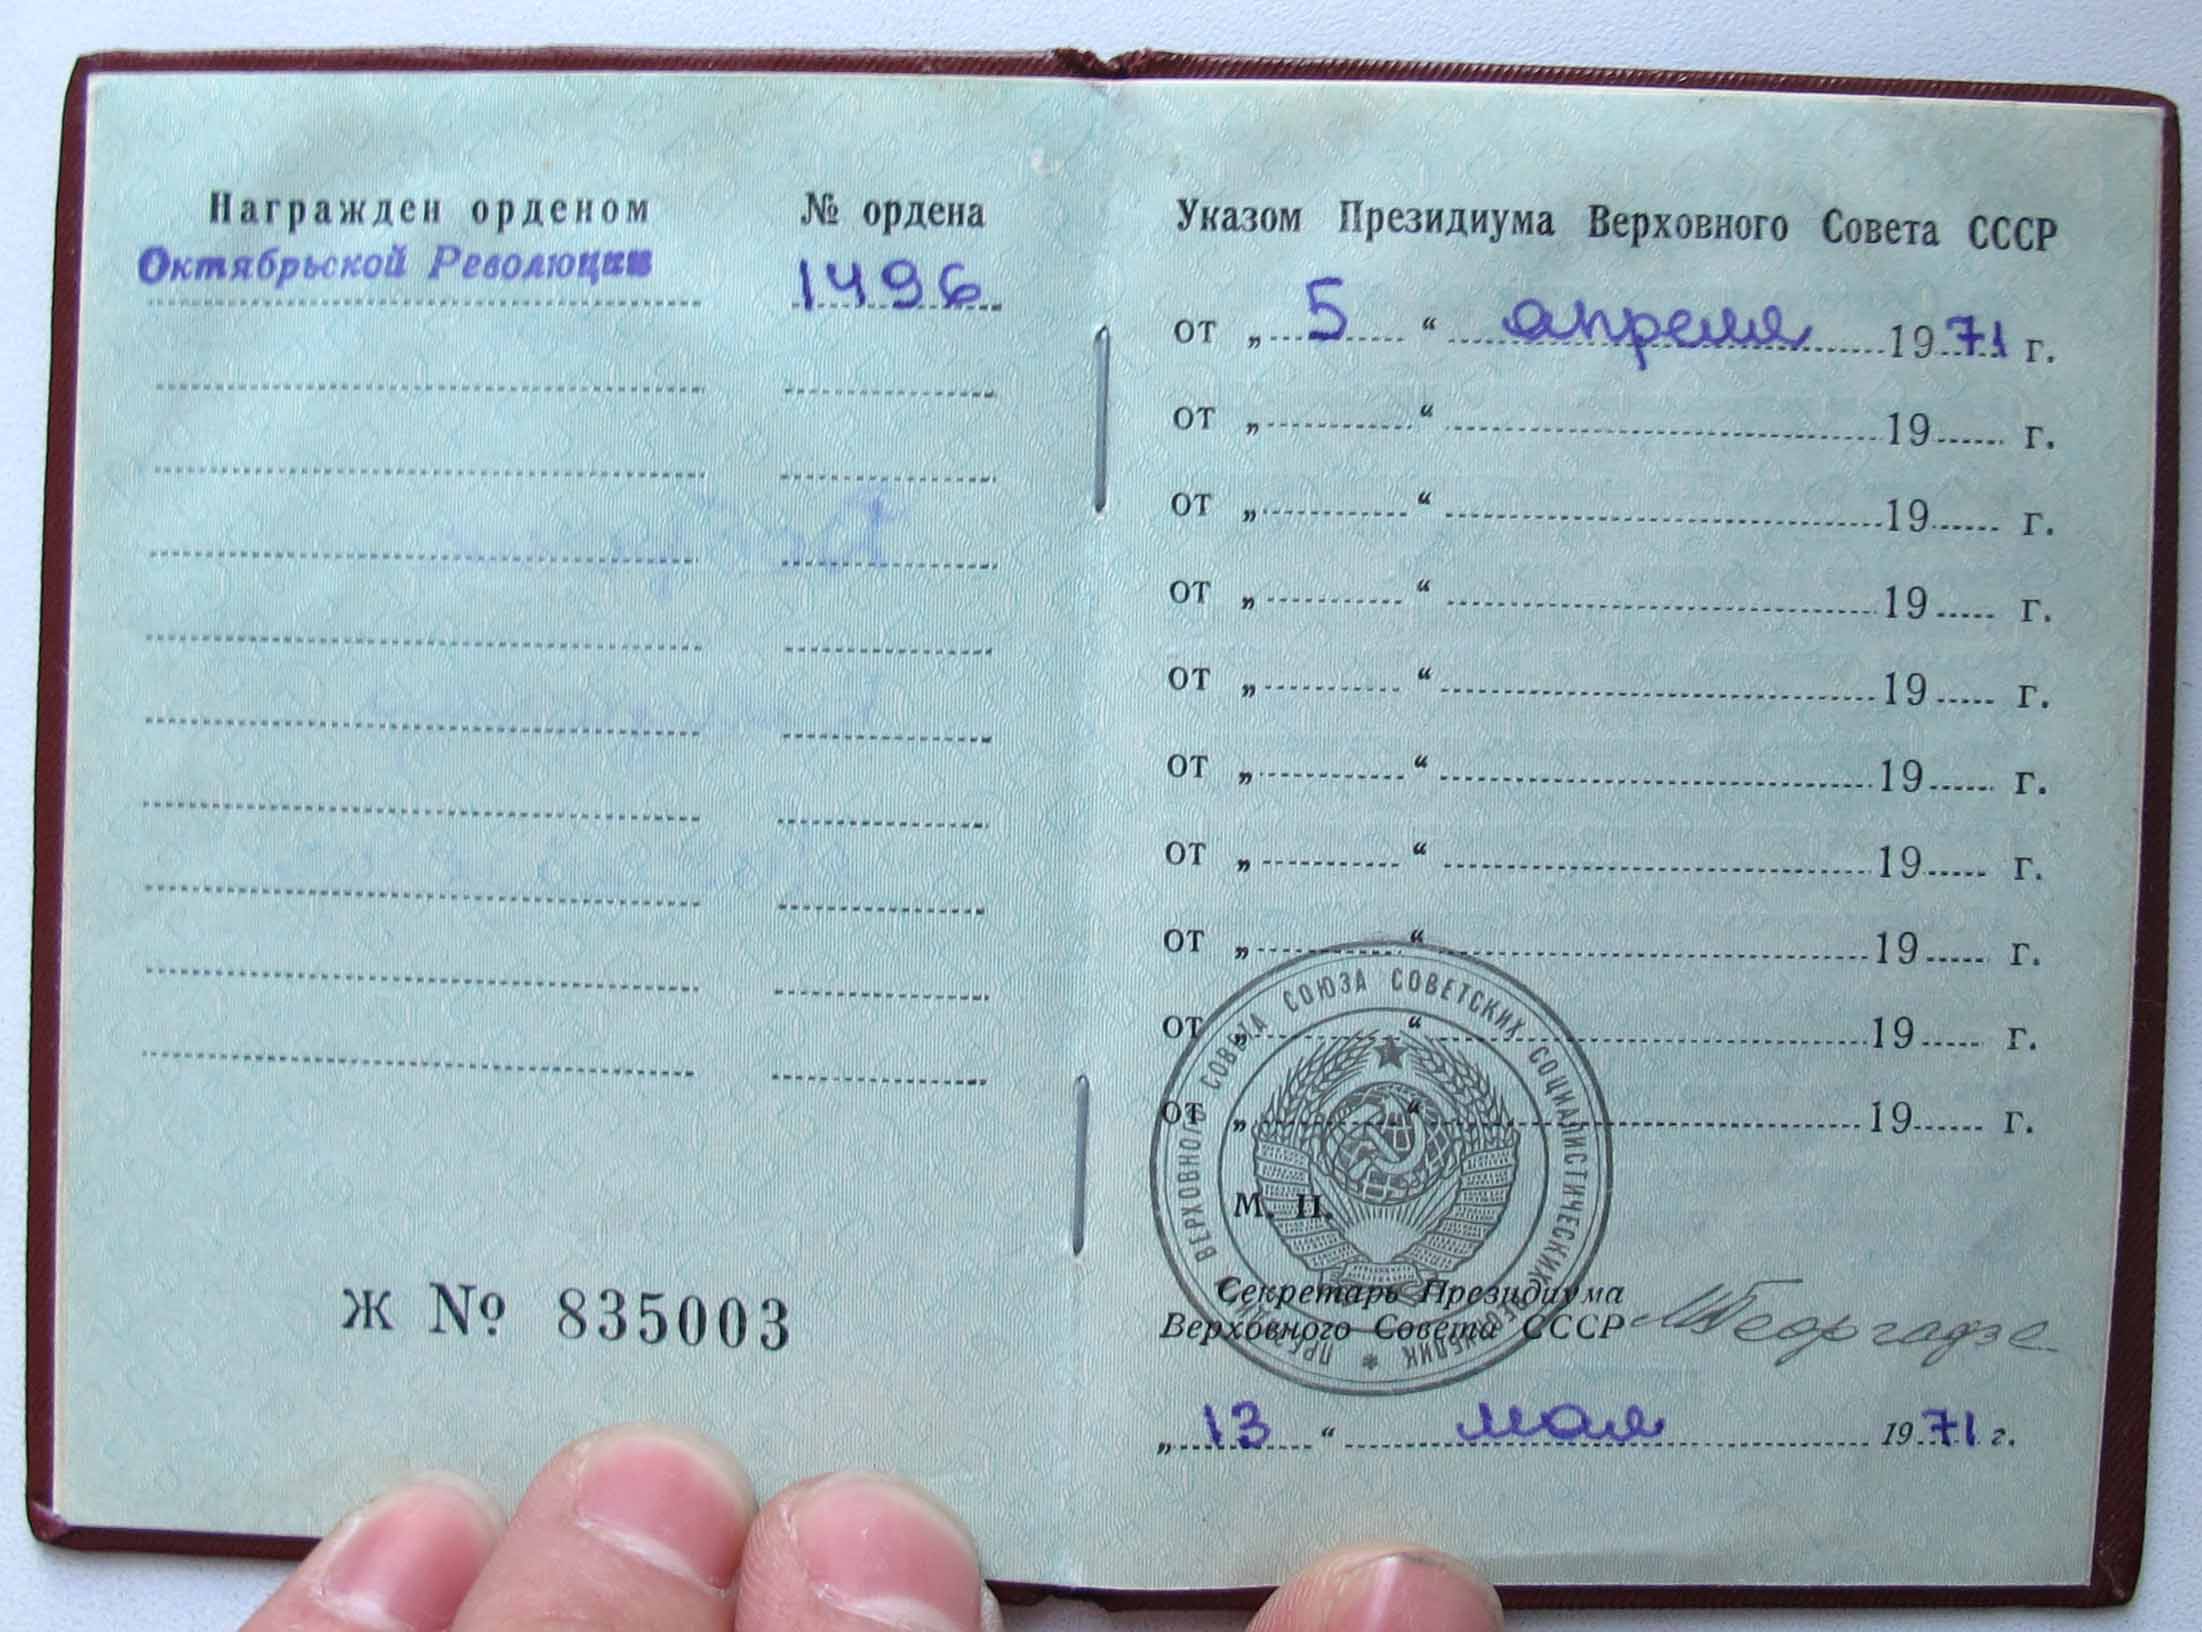 Награжден орденом № ордена
Октябрьской Революции 1496
Ж № 835003
Указом Президиума Верховного Совета СССР
от „ 5 “ апреля 1971 г.
от „ “ 19 г.
от „ “ 19 г.
от „ “ 19 г.
от „ “ 19 г.
от „ “ 19 г.
от „ “ 19 г.
от „ “ 19 г.
от „ “ 19 г.
от „ “ 19 г.
ПРЕЗИДИУМ ВЕРХОВНОГО СОВЕТА СОЮЗА СОВЕТСКИХ СОЦИАЛИСТИЧЕСКИХ РЕСПУБЛИК *
М. П.
Секретарь Президиума
Верховного Совета СССР МГеоргадзе
„ 13 “ мая 1971 г.